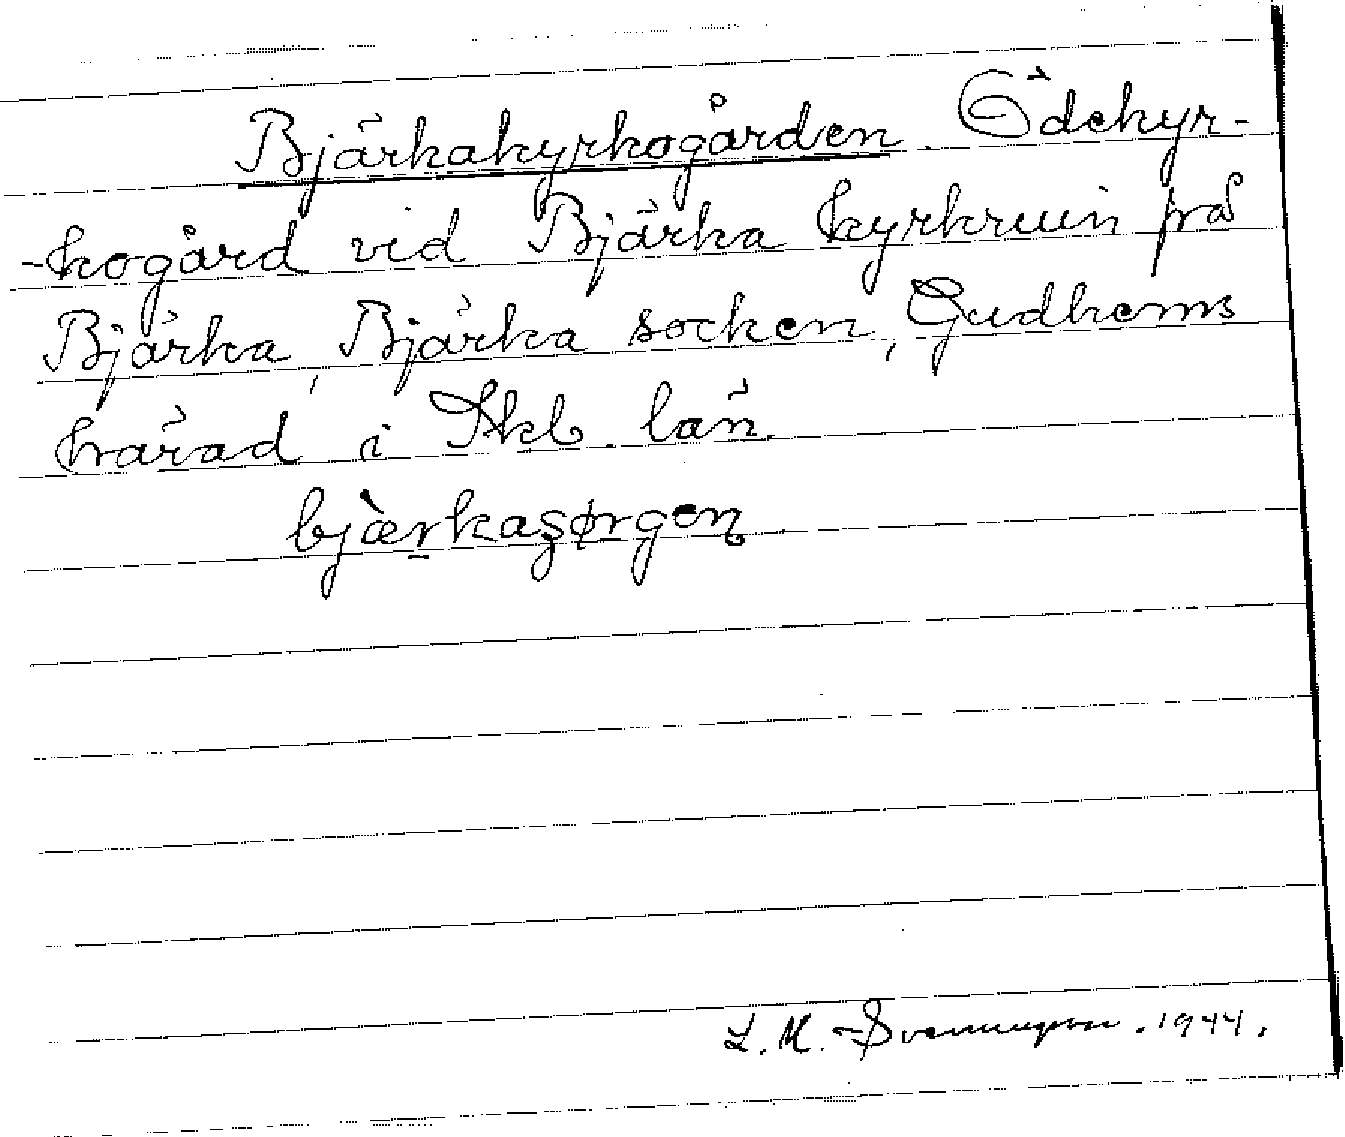 Bjärkakyrkogården. Ödekyr-
-kogård vid Bjärka kyrkruin på
Bjärka, Bjärka socken, Gudhems
härad i Skb. län.
bjærkaşørgen
L. M. Svenungsson. 1944.